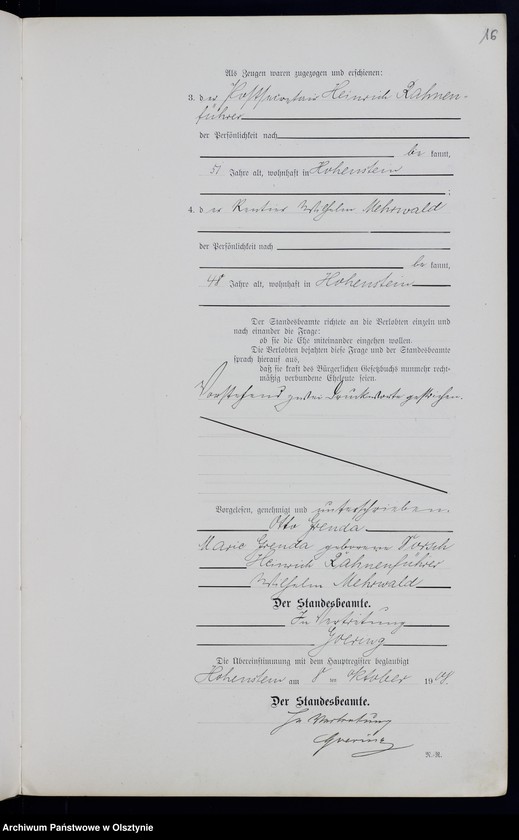 16
Als Zeugen waren zugezogen und erschienen:
3. der Postsekretär Heinrich Rähnen-
führer
der Persönlichkeit nach
be kannt,
51 Jahre alt, wohnhaft in Hohenstein
;
4. der Rentier Wilhelm Mehrwald
der Persönlichkeit nach
be kannt,
48 Jahre alt, wohnhaft in Hohenstein
Der Standesbeamte richtete an die Verlobten einzeln und
nach einander die Frage:
ob sie die Ehe miteinander eingehen wollen.
Die Verlobten bejahten diese Frage und der Standesbeamte
sprach hierauf aus,
daß sie kraft des Bürgerlichen Gesetzbuchs nunmehr recht-
mäßig verbundene Eheleute seien.
Vorstehend zwei Druckworte gestrichen.
Vorgelesen, genehmigt und unterschrieben.
Otto Grenda
Marie Grenda geborene Torsch
Heinrich Rähnenführer
Wilhelm Mehrwald
Der Standesbeamte.
In Vertretung
Goering
Die Übereinstimmung mit dem Hauptregister beglaubigt
Hohenstein am 8 ten Oktober 1908.
Der Standesbeamte.
In Vertretung
Goering
R.-R.
Archiwum Państwowe w Olsztynie